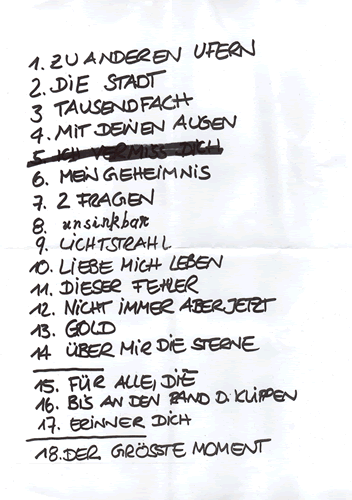 1. ZU ANDEREN UFERN
2. DIE STADT
3 TAUSENDFACH
4. MIT DEINEN AUGEN
5. ICH VERMISS DICH
6. MEIN GEHEIMNIS
7. 2 FRAGEN
8. unsinkbar
9. LICHTSTRAHL
10. LIEBE MICH LEBEN
11. DIESER FEHLER
12. NICHT IMMER ABER JETZT
13. GOLD
14 ÜBER MIR DIE STERNE
15. FÜR ALLE, DIE
16. BIS AN DEN RAND D. KLIPPEN
17. ERINNER DICH
18. DER GRÖSSTE MOMENT